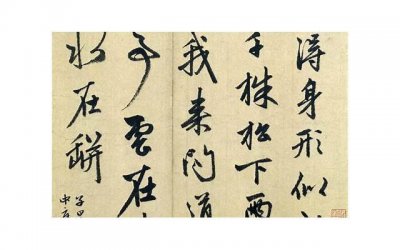 得身形似
千株松下兩
我来問道
雲在
水在缾